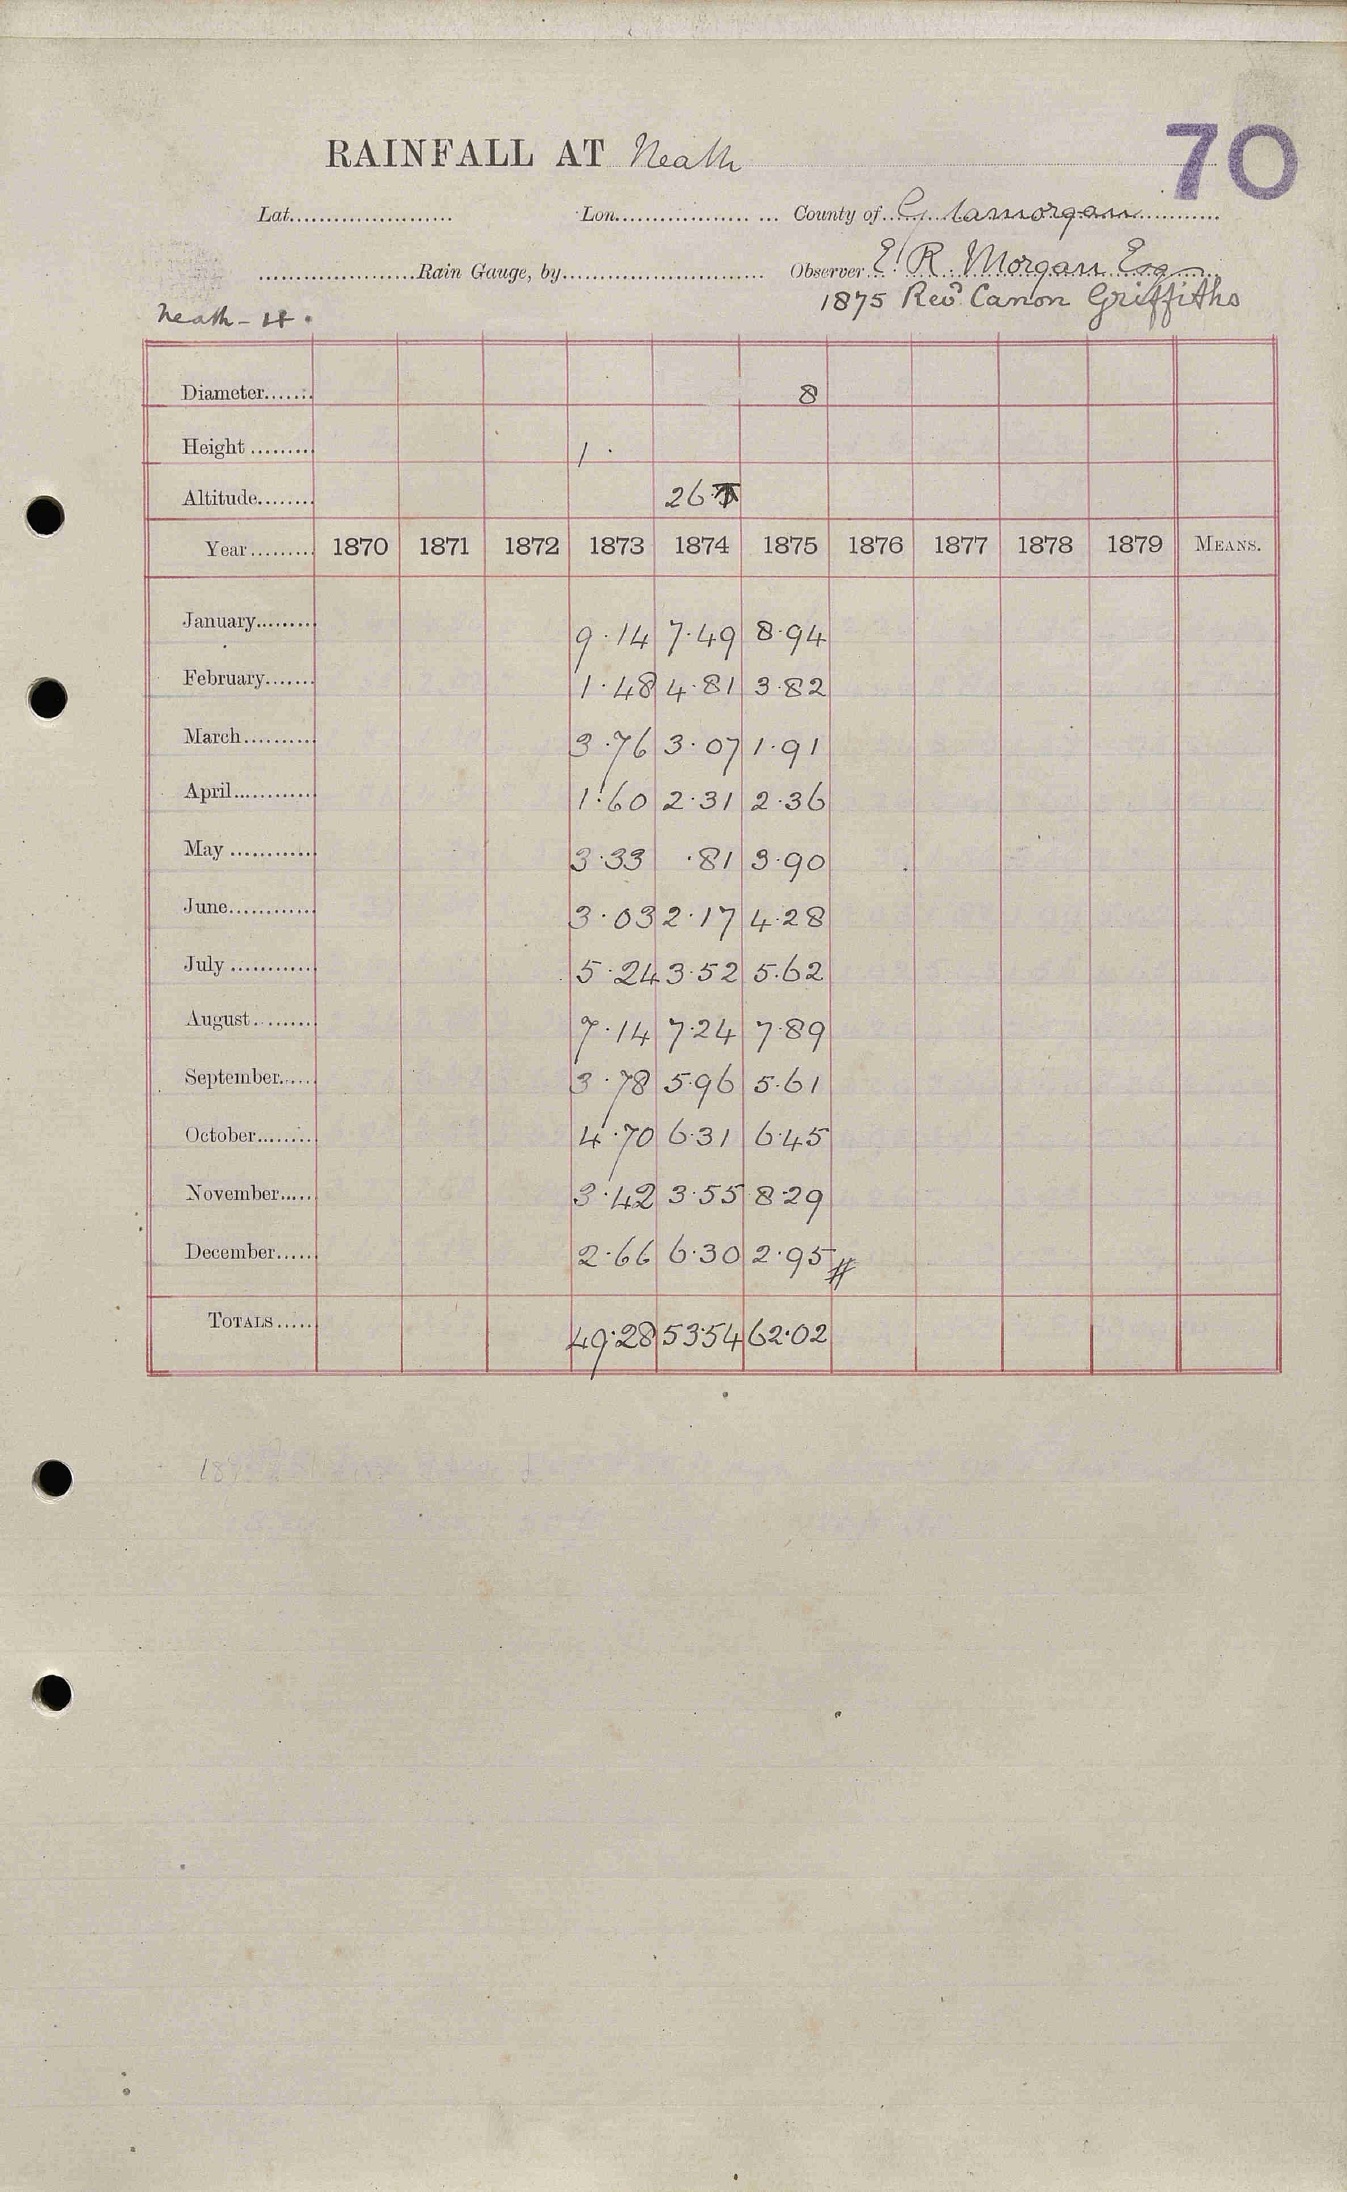 70
RAINFALL AT Neath
Lat. Lon. County of Glamorgan
Rain Gauge, by Observer E. R. Morgan Esq
1875 Revd Canon Griffiths
Neath - 14.
Diameter 8
Height 1
Altitude 26
Year 1870 1871 1872 1873 1874 1875 1876 1877 1878 1879 MEANS.
January 9.14 7.49 8.94
February 1.48 4.81 3.82
March 3.76 3.07 1.91
April 1.60 2.31 2.36
May 3.33 .81 3.90
June 3.03 2.17 4.28
July 5.24 3.52 5.62
August 7.14 7.24 7.89
September 3.78 5.96 5.61
October 4.70 6.31 6.45
November 3.42 3.55 8.29
December 2.66 6.30 2.95 #
TOTALS 49.28 53.54 62.02